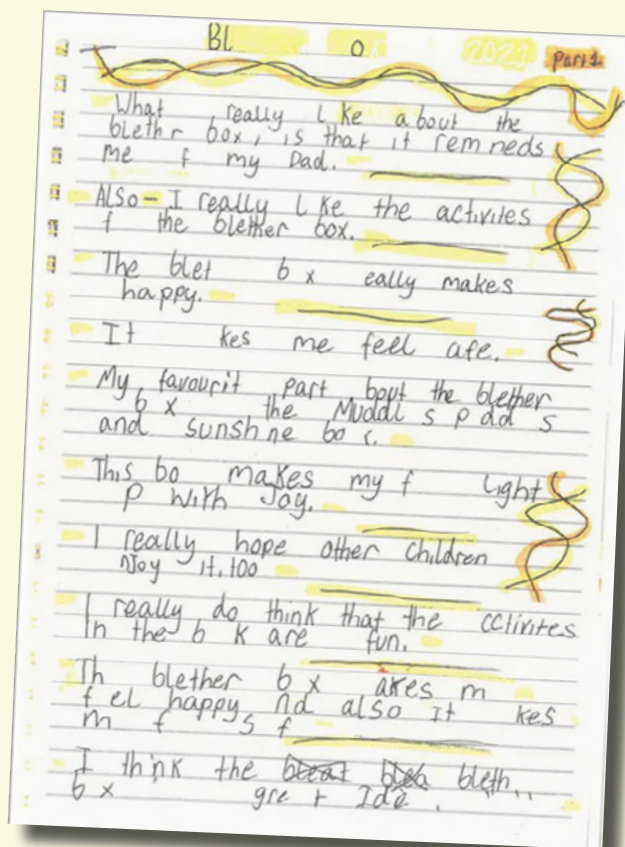 Bl o 2021 Part 1
What really l ke about the
bleth r box, is that it rem neds
me f my Dad.
Also - I really l ke the activites
f the blether box.
The blet b x eally makes
happy.
It kes me feel afe.
My favourit part bout the blether
b x the Muddl s p dd s
and sunsh ne bo .
This bo makes my f light
p with Joy.
I really hope other children
njoy it, too
I really do think that the cctivites
In the b k are fun.
Th blether b x akes m
f el happy nd also It kes
m f s f
I think the bleth
b x gre t Ide .